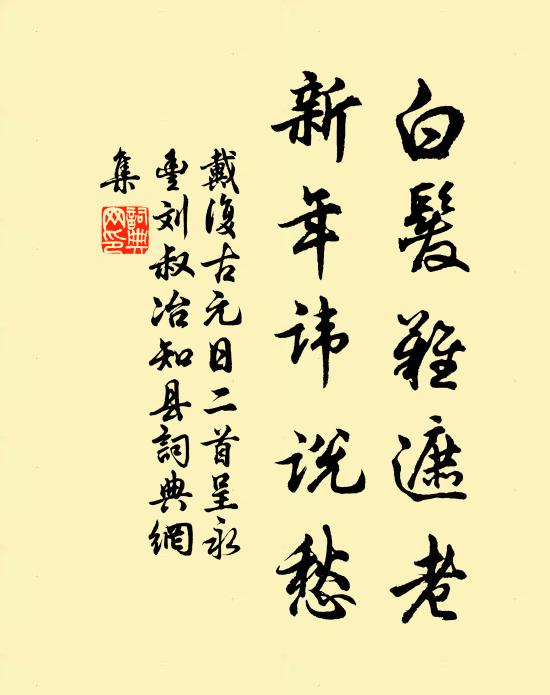 白髮難遮老
新年諱説愁
戴復古元日二首呈永
豊刘叔冶知县詞典網
集
詞典
网印